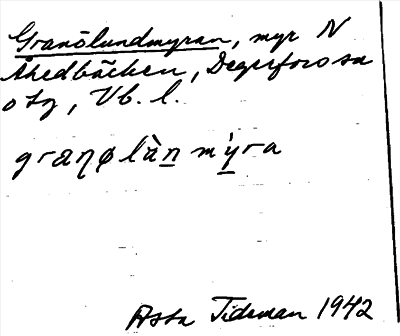 Granölundmyran, myr N
Åhedbäcken, Degerfors sn
o by, Vb. l.
granølàn mýra
Asta Tideman 1942